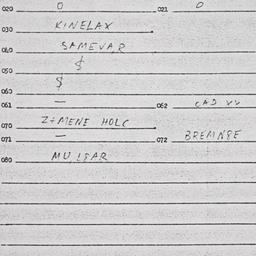 020 0 021 0
030 KINELAX
040 SAMEVAR
050 $
060 $
061 — 062 CAD VV
070 Z+MENE HOLC
071 — 072 BREMN8E
080